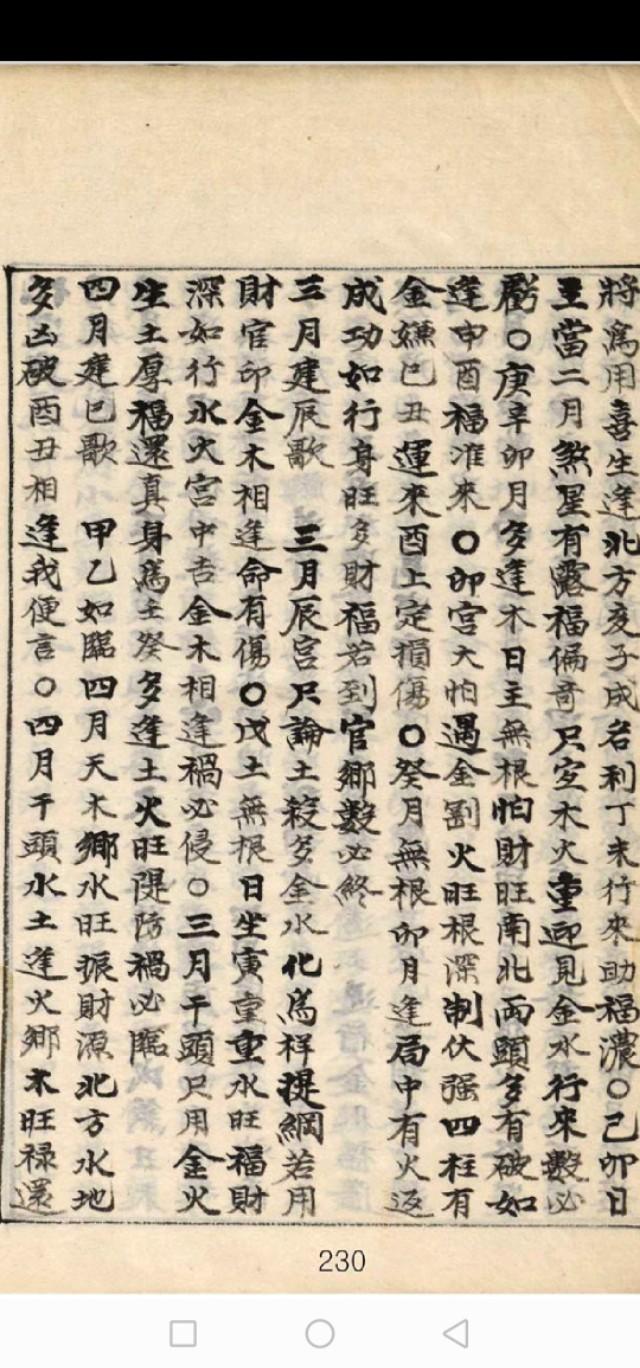 將爲用喜生逢北方亥子成名利丁未行來助福濃○己卯日
主當二月煞星有露福偏奇只宜木火重迎見金水行來數必
虧○庚辛卯月多逢木日主無根怕財旺南北兩頭多有破如
逢申酉福淮來○卯宮大怕遇金割火旺根深制伏强四柱有
金嫌巳丑運來酉上定損傷○癸月無根卯月逢局中有火返
成功如行身旺多財福若到官鄉數必終
三月建辰歌 三月辰宮只論土殺多金水化爲祥提綱若用
財官卬金木相逢命有傷○戊土無根日坐寅重重水旺福財
深如行水火宮中吉金木相逢禍必侵○三月干頭只用金火
生土厚福還真身爲壬癸多逢土火旺隄防禍必臨
四月建巳歌 甲乙如臨四月天木鄉水旺振財源北方水地
多凶破酉丑相逢我便言○四月干頭水土逢火鄉木旺禄還
230